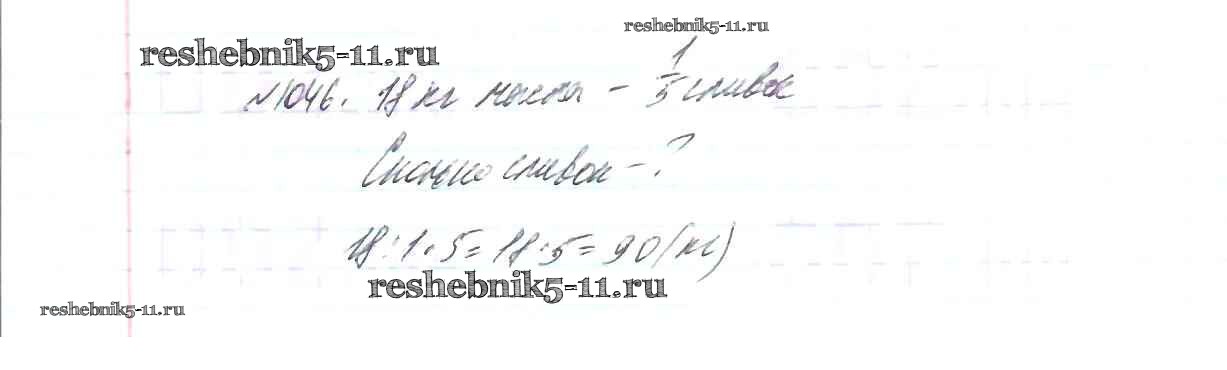 reshebnik5-11.ru
reshebnik5-11.ru
№1046. 18 кг масла – 1/5 сливок
Сколько сливок – ?
18:1·5=18·5=90(кг)
reshebnik5-11.ru
reshebnik5-11.ru